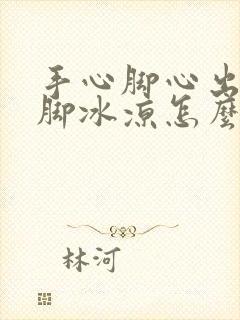 手心脚心出
脚冰凉怎麼
林河